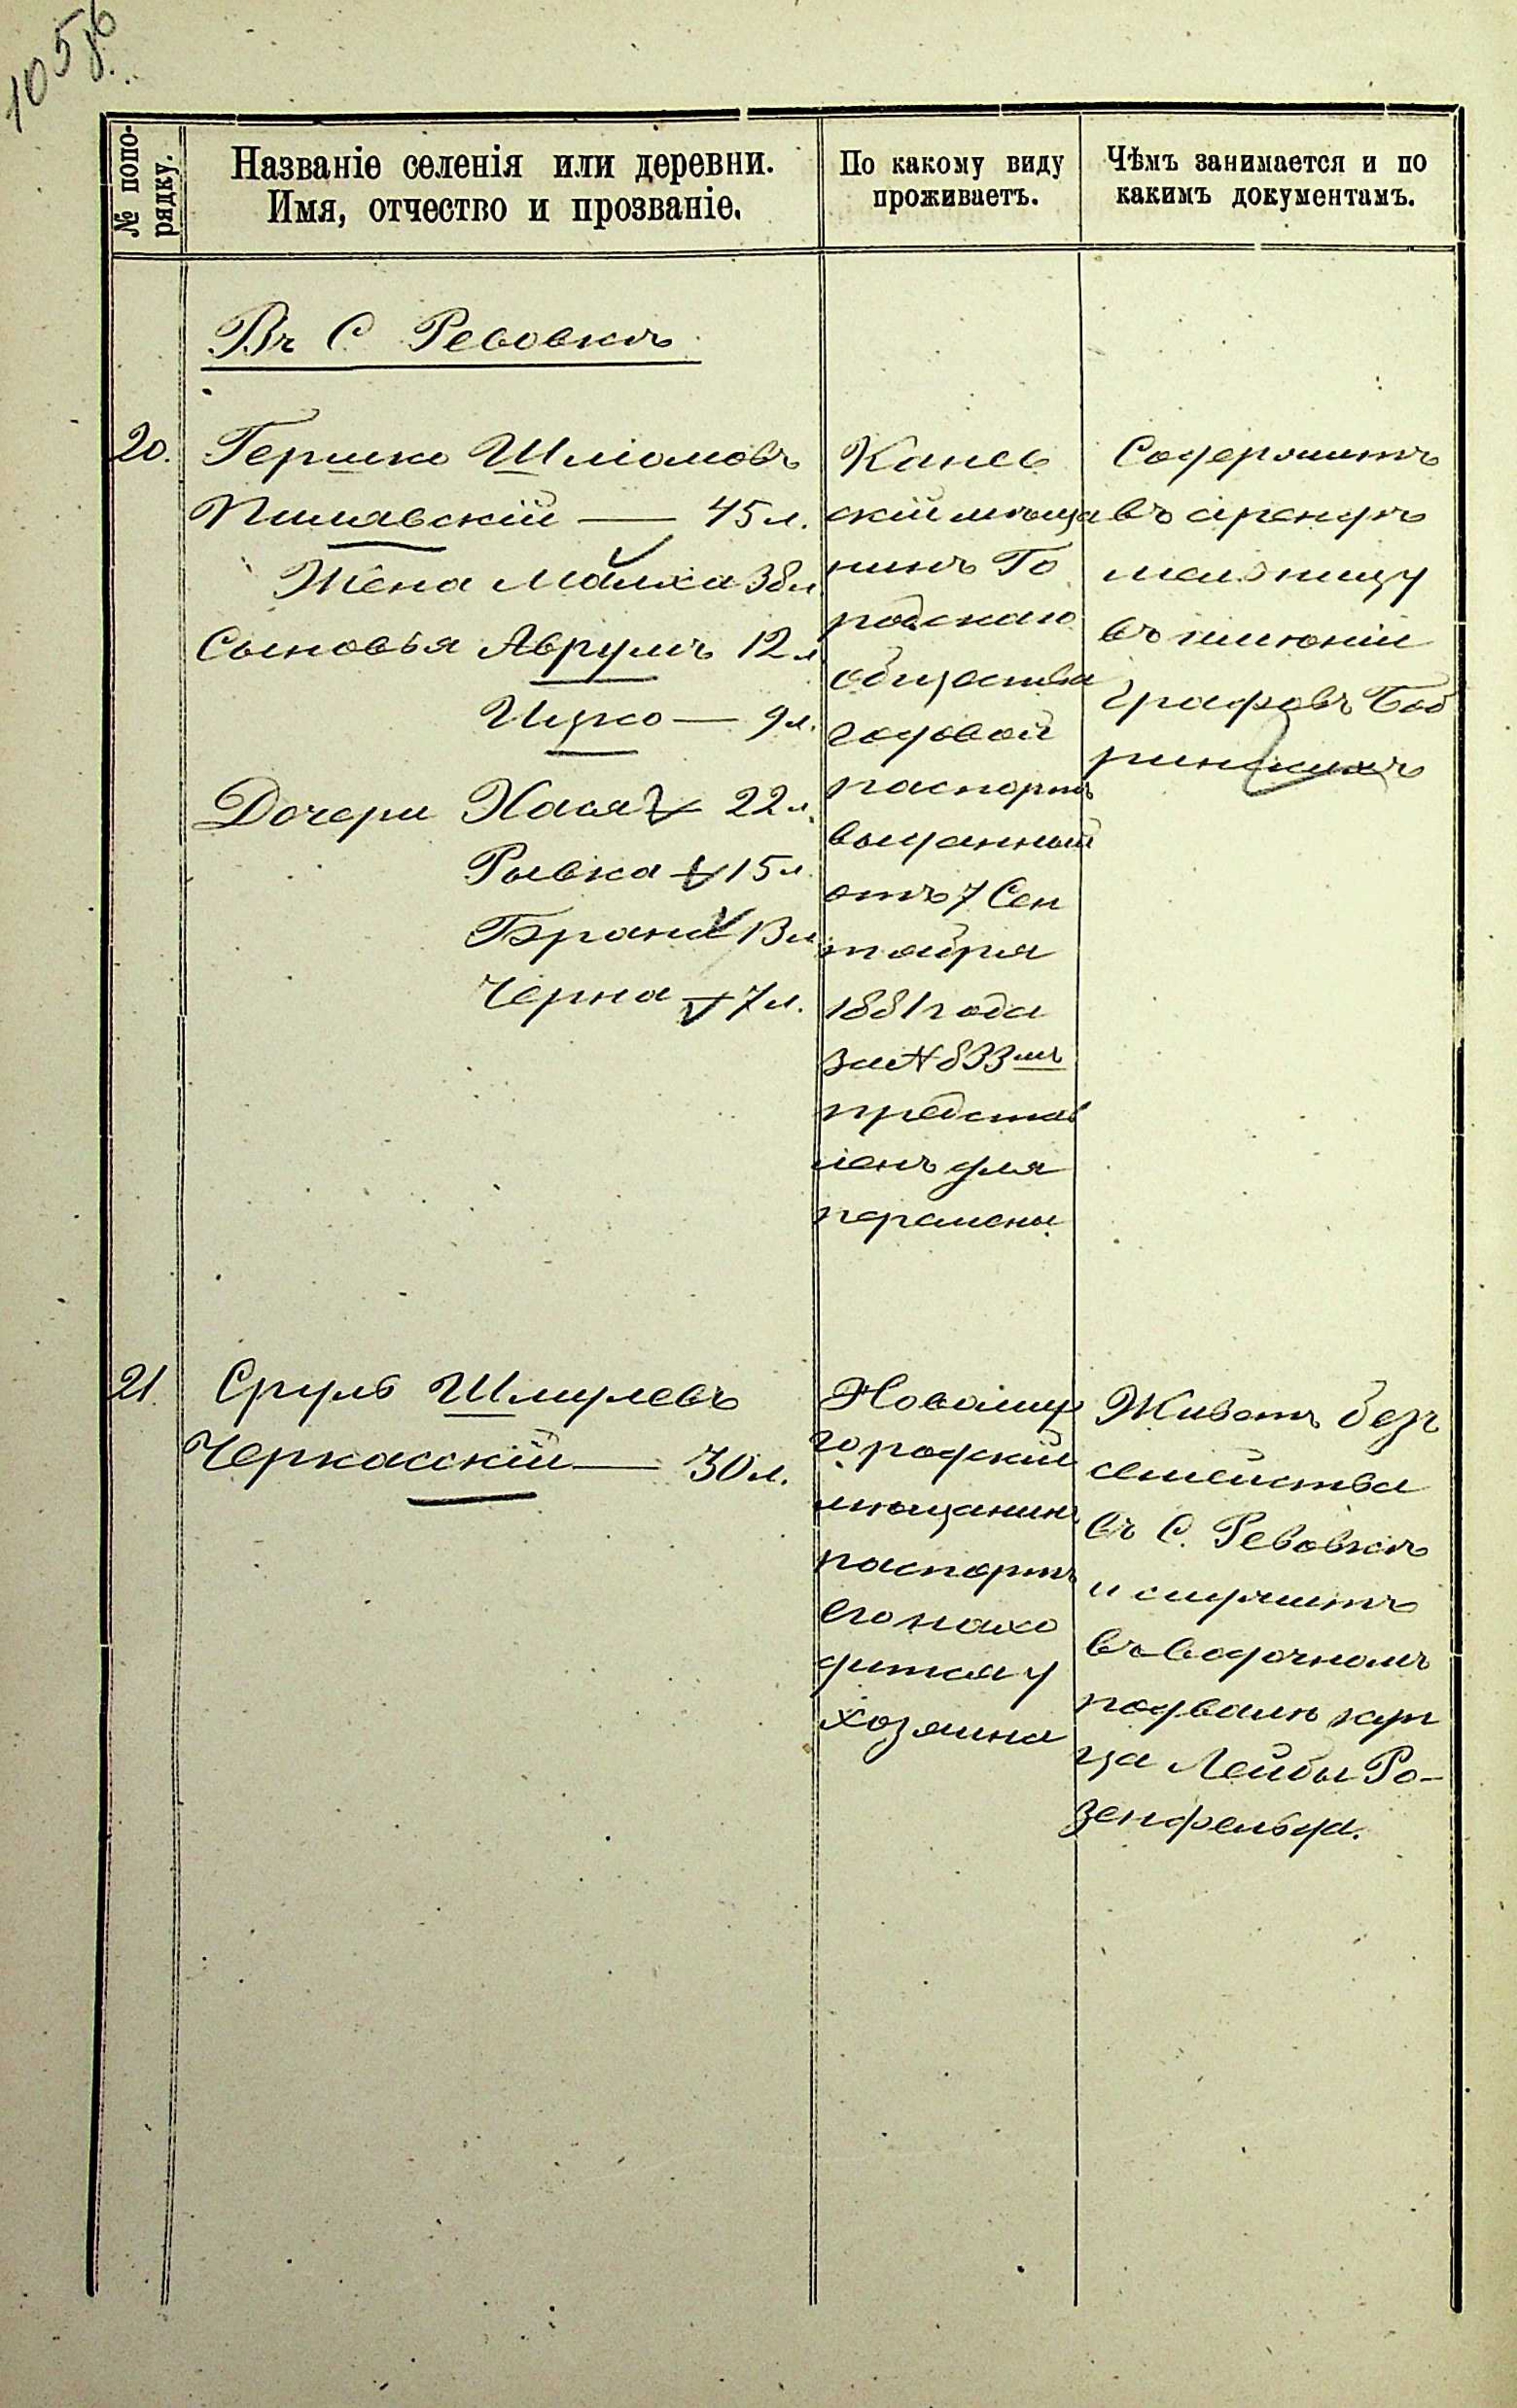 105
№ попо-
рядку.
Названіе селенія или деревни.
Имя, отчество и прозваніе.
По какому виду
проживаетъ.
Чѣмъ занимается и по
какимъ документамъ.
Въ С Ревовкѣ
20.
Гершко Шліомовъ
Пилявскій — 45 л.
Жена Малка 38 л
Сыновья Аврумъ 12 л
Ицко — 9 л.
Дочери Хася 22 л.
Рывка 15 л.
Брана 13 л.
Черна 7 л.
Канев
скій мѣща
нинъ Го
родскаго
общества
годовой
паспортъ
выданный
отъ 7 Сен
тября
1881 года
за № 833мъ
представ
ленъ для
перемены
Содержитъ
въ арендѣ
мельницу
въ имѣніи
Графовъ Боб
ринскихъ
21.
Сруль Шмулевъ
Черкасскій — 30 л.
Новомир
городскій
мѣщанинъ
паспортъ
его нахо
дится у
хозяина
Живетъ безъ
семейства
въ С. Ревовкѣ
и служитъ
въ водочномъ
подвалѣ куп
ца Лейбы Ро-
зенфельда.